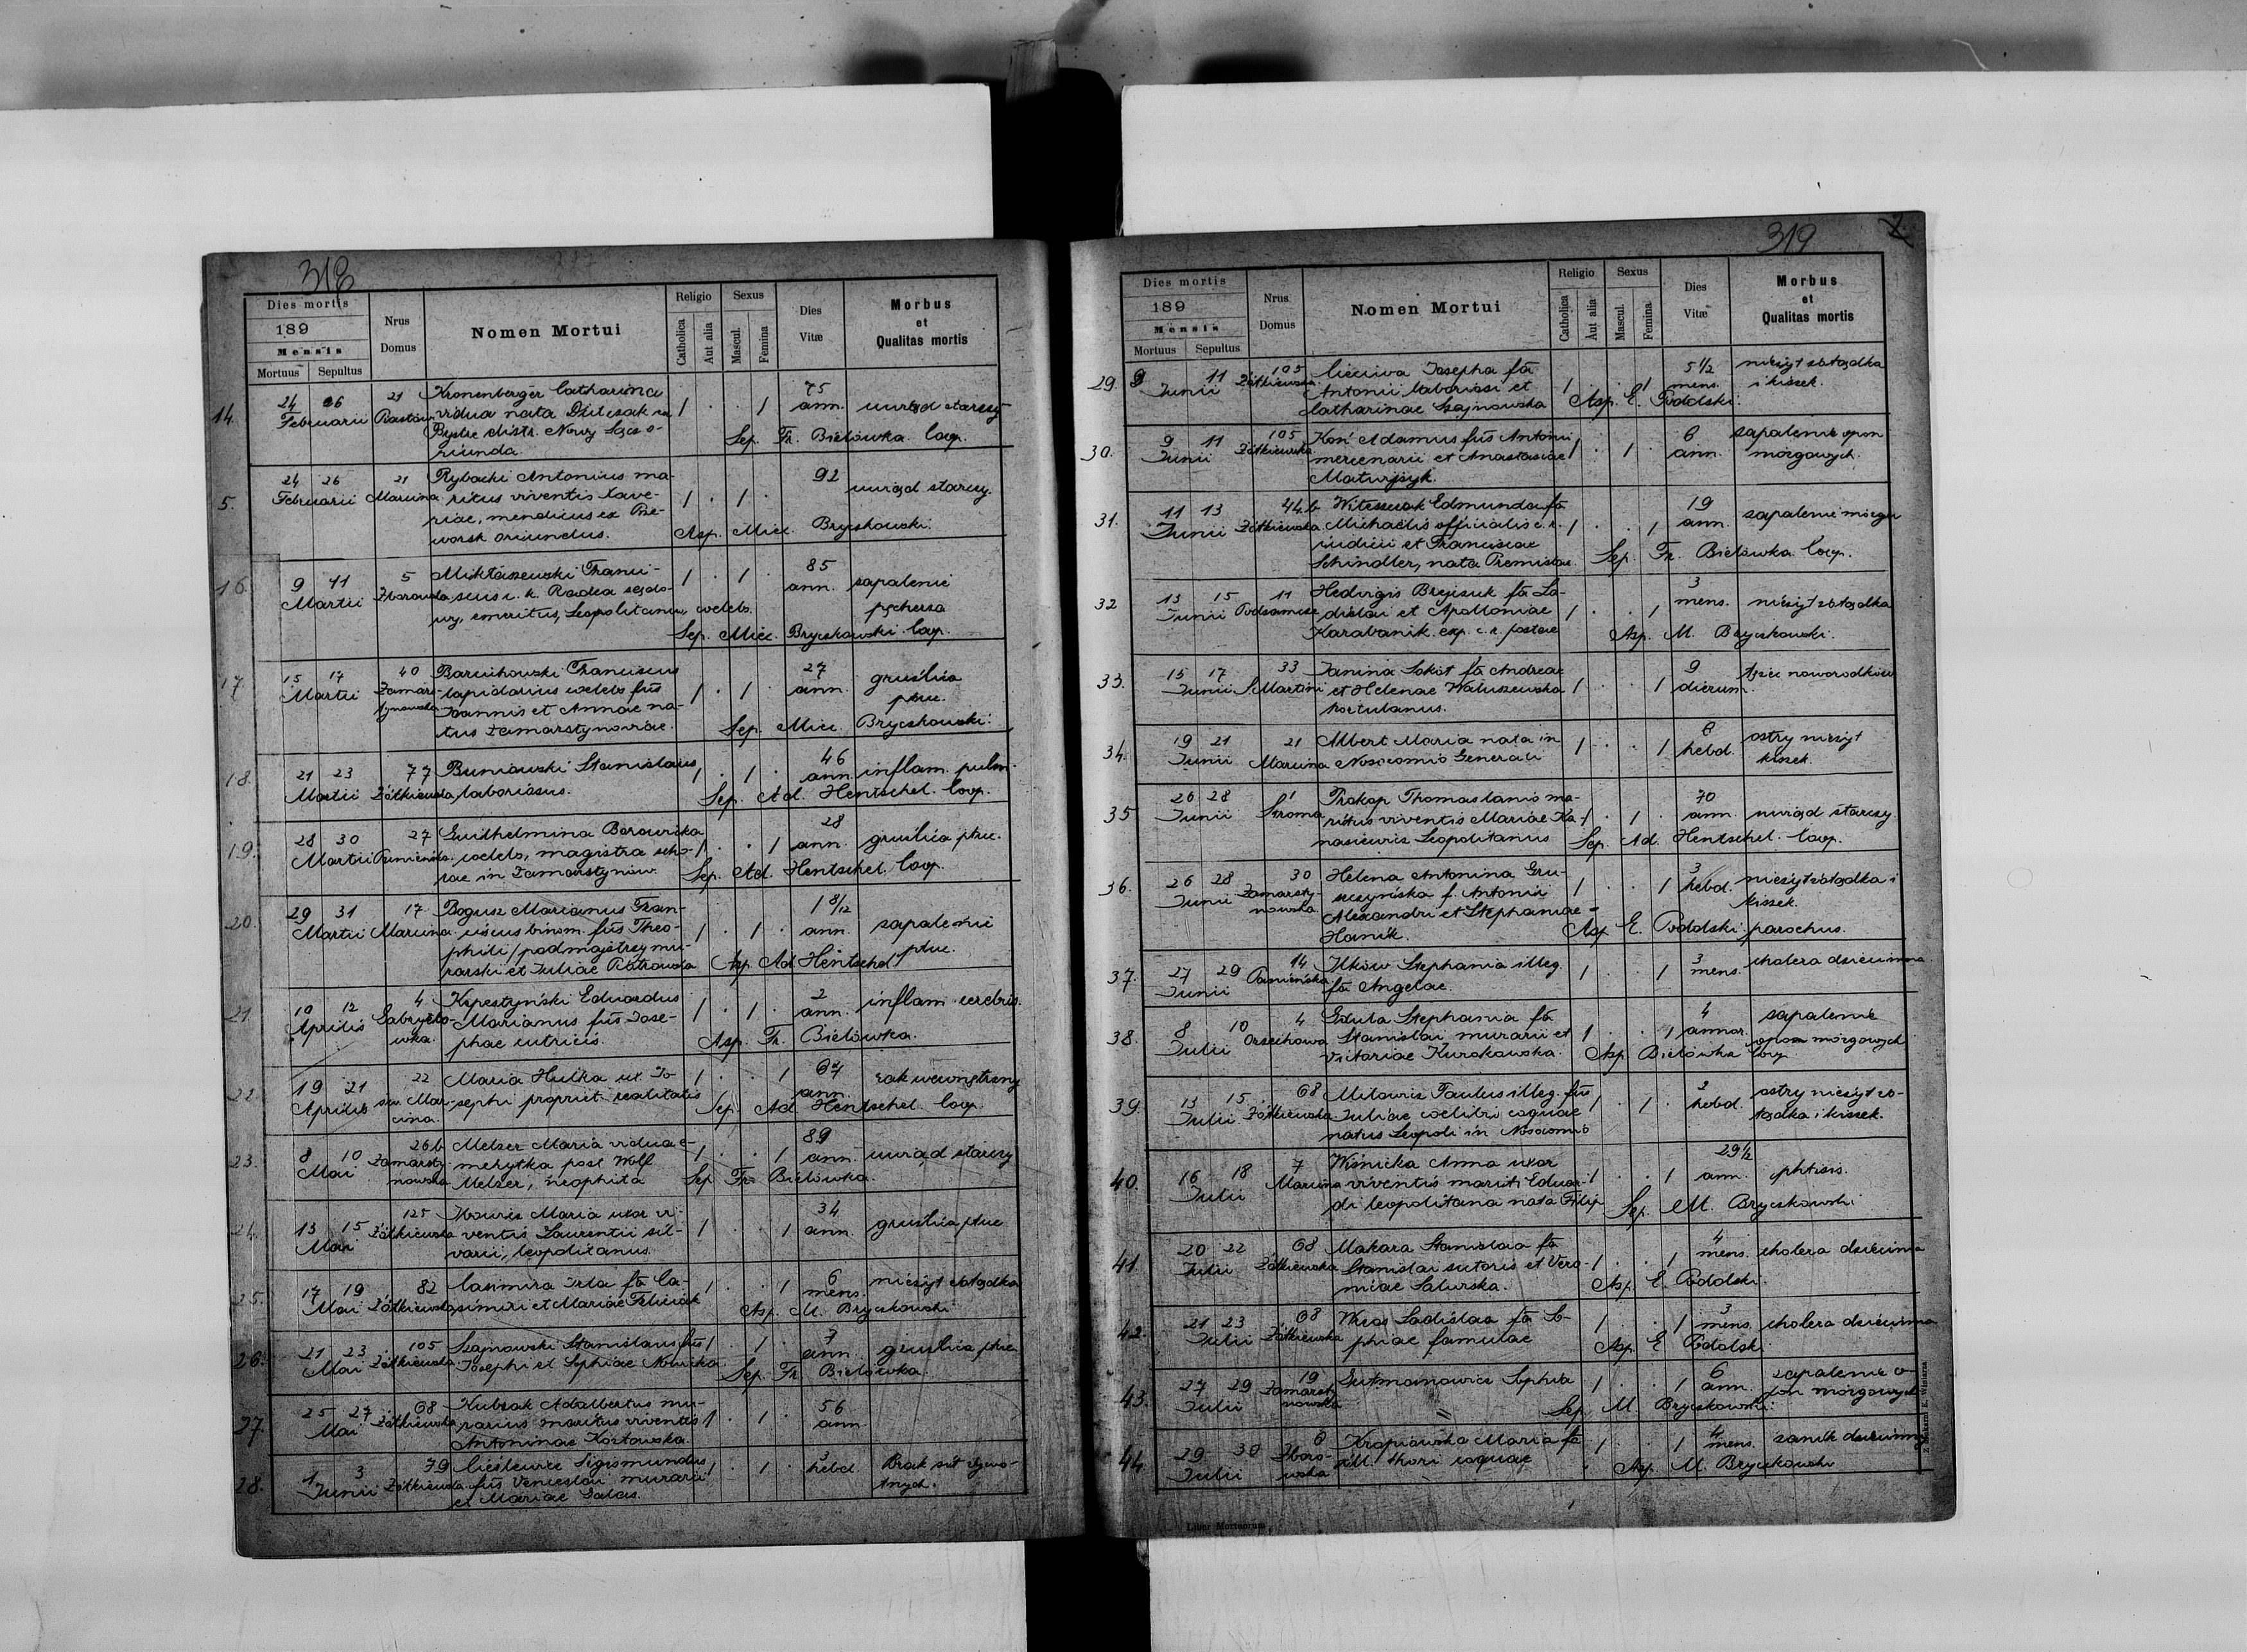 318
Dies mortis
189
Mensis
Mortuus Sepultus
Nrus
Domus
Nomen Mortui
Religio
Catholica
Aut alia
Sexus
Mascul.
Femina
Dies
Vitæ
Morbus
et
Qualitas mortis
14. 24 26 21 Kronenberger Catharina 75
Februarii vidua nata 1 . . 1 ann. uwiąd starczy
Bystre distr. Nowy Sącz o-
riunda
Sep. Fr. Bielówka Coop.
5. 24 26 21 Rybacki Antonius ma- 92
Februarii Marcina ritus viventis Xave- 1 . 1 . uwiąd starczy.
riae, mendicus ex Prze-
worsk oriundus. Asp. Miec. Bryczkowski.
16. 9 11 5 Miktaszewski Franci- 1 . 1 . 85
Martii Zborowska scus c. k. Radca sądo- ann. zapalenie
wy, emeritus, Leopolitanus, coelebs. pęcherza
Sep. Miec. Bryczkowski Coop.
17. 15 17 40 Franciscus 27
Martii Zamars- lapidarius coelebs fius 1 . 1 . ann. gruźlica
tynowska Joannis et Annae na- płuc.
tus Zamarstynoviae. Sep. Miec. Bryczkowski.
18. 21 23 77 Buniowski Stanislaus 1 . 1 . 46
Martii Żółkiewska laboriosus. ann. inflam. pulm.
Sep. Ad. Hentschel. Coop.
19. 28 30 27 Guilhelmina Borowska 28
Martii coelebs, magistra scho- 1 . . 1 ann. gruźlica płuc.
lae in Zamarstynów. Sep. Ad. Hentschel Coop.
20. 29 31 17 Bogusz Marianus Fran- 1 8/12
Martii Marcina ciscus binom. fius Theo- 1 . 1 . ann. zapalenie
phili / podmajstrzy mu- płuc.
rarski et Juliae Piotrowska Asp. Ad Hentschel
21. 10 12 4 Krpestyński Eduardus 2
Aprilis Gabryelo- Marianus fius Jose- 1 . 1 . ann. inflam. cerebris.
wka. phae nutricis. Asp. Fr. Bielówka.
22. 19 21 22 Maria Hulka ux. Jo- 1 . . 1 67
Aprilis św. Mar- sephi propriet. realitatis ann. rak wewnętrzny
cina. Sep. Ad Hentschel Coop.
23. 8 10 26b Melzer Maria vidua e- 89
Mai Zamarsty- merytka post Wolf 1 . . 1 ann. uwiąd starczy
nowska Melzer, neophita Sep Fr. Bielówka.
24. 13 15 125 Maria uxor vi- 34
Mai Żółkiewska ventis Laurentii sil- 1 . . 1 ann. gruźlica płuc
varii, leopolitanus.
25. 17 19 82 Casimira Irla fa Ca- 1 . . 1 6
Mai Żółkiewska simiri et Mariae Feliciak mens. nieżyt żołądka
Asp. M. Bryczkowski
26. 21 23 105 Szajnowski Stanislaus fius 1 . 1 . 7
Mai Żółkiewska Josephi et Sophiae ann. gruźlica płuc
Sep. Fr. Bielówka.
27. 25 27 68 Kubrak Adalbertus mu- 56
Mai Żółkiewska rarius maritus viventis 1 . 1 . ann.
Antoninae Kozłowska.
28. 1 3 79 Cieślewic Sigismundus 3
Junii Żółkiewska fius Venceslai murarii 1 . 1 . hebd. Brak sił żywo-
et Mariae Galas. tnych.
319
Dies mortis
189
Mensis
Mortuus Sepultus
Nrus
Domus
Nomen Mortui
Religio
Catholica
Aut alia
Sexus
Mascul.
Femina
Dies
Vitæ
Morbus
et
Qualitas mortis
29. 9 11 105 Josepha fa 5 1/2 nieżyt żołądka
Junii Żółkiewska Antonii laboriosi et 1 . . 1 mens. i kiszek.
Catharinae Szajnowska Asp. E. Podolski.
30. 9 11 105 Koń Adamus fius Antonii 6 zapalenie opon
Junii Żółkiewska mercenarii et Anastasiae 1 . 1 . ann. mózgowych.
31. 11 13 44b Edmunda fa 19
Junii Żółkiewska Michaelis officialis c. k. 1 . . 1 ann. zapalenie mózgu
iudicii et Franciscae Sep. Fr. Bielówka Coop.
Schindler, nata Premisliae
32 13 15 11 Hedvigis fa La- 3
Junii Podzamcze dislai et Apolloniae 1 . . 1 mens. nieżyt żołądka
Karabanik. exp. c. k. postae Asp. M. Bryczkowski.
33. 15 17 33 Janina Sokół fa Andreae 9
Junii S. Martini et Helenae Waluszewska 1 . . 1 dierum. noworodków
hortulanus.
34. 19 21 21 Albert Maria nata in 8 ostry nieżyt
Junii Marcina Nosocomio Generali 1 . . 1 hebd. kiszek.
35 26 28 1 Prokop Thomaslanis ma- 70
Junii Stroma ritus viventis Mariae Ka- 1 . 1 . ann. uwiąd starczy
nasiewicz Leopolitanus Sep. Ad. Hentschel. Coop.
36. 26 28 30 Helena Antonina Gru- 3
Junii Zamarsty- szczyńska f. Antonii 1 . . 1 hebd. nieżyt żołądka i
nowska Alexandri et Stephaniae kiszek.
Hanik. Asp E. Podolski parochus.
37. 27 29 14 Ilków Stephania illeg. 3 cholera dziecinna
Junii fa Angelae. 1 . . 1 mens.
38. 8 10 4 Stephania fa 4 zapalenie
Julii Orzechowa Stanislai murarii et 1 . . 1 annor. opon mózgowych
Victoriae Kurakowska. Asp Bielówka Coop
39. 13 15. 68 Paulus illeg. fius 2 ostry nieżyt żo-
Julii Żółkiewska Juliae coelibis coquae 1 . 1 . hebd. łądka i kiszek.
natus Leopoli in Nosocomio
40. 16 18 7 Wiśnicka Anna uxor 29 1/2
Julii Marcina viventis mariti Eduar- 1 . . 1 ann. phtisis.
di leopolitana nata Filip Sep. M. Bryczkowski
41. 20 22 68 Makara Stanislaa fa 4
Julii Żółkiewska Stanislai sutoris et Vero- 1 . . 1 mens. cholera dziecinna
nicae Salurska. Asp. E. Podolski.
42. 21 23 68 Ladislaa fa So- 3
Julii Żółkiewska phiae famulae 1 . . 1 mens. cholera dziecinna
Asp. E Podolski.
43. 27 29 19 Gutmanowicz Sophia 1 . . 1 6 zapalenie o-
Julii Zamarsty- ann. pon mózgowych
nowska Sep. M. Bryczkowski.
44. 29 30 6 Maria fa 4
Julii Zboro- ill. coquae 1 . . 1 mens. zanik dziecinny
wska Asp. M. Bryczkowski
Liber Mortuorum